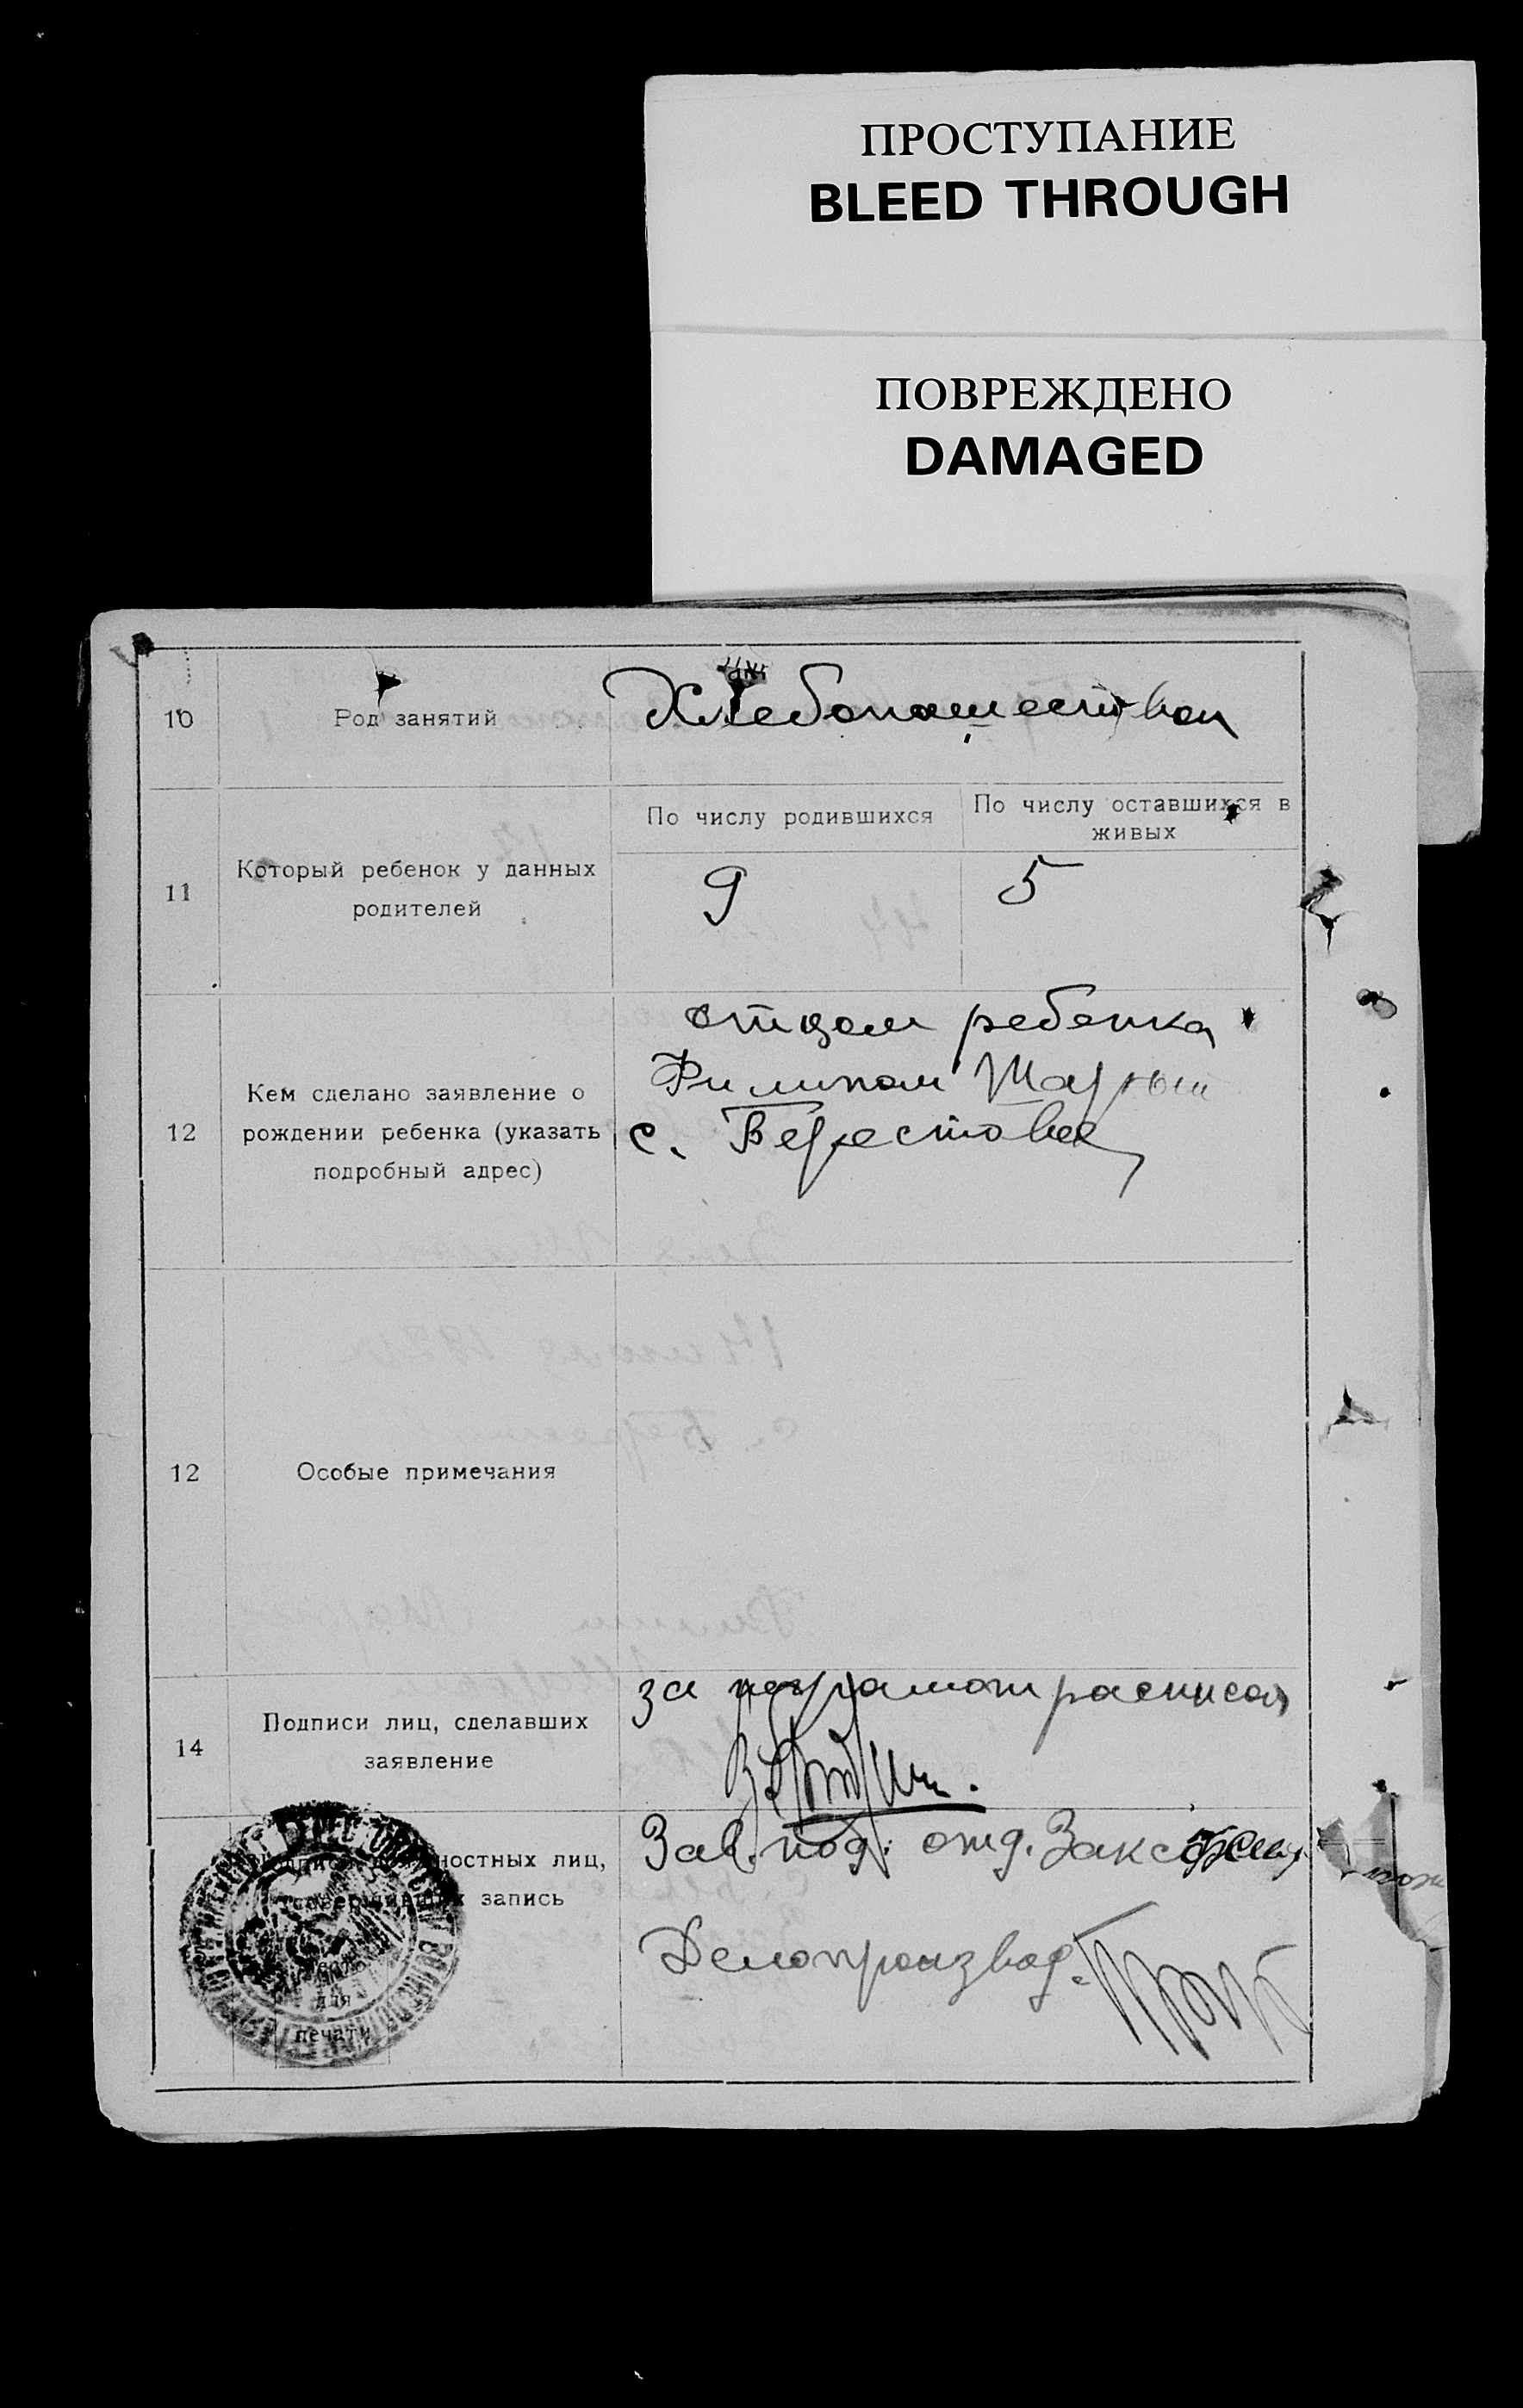 ПРОСТУПАНИЕ
BLEED THROUGH
ПОВРЕЖДЕНО
DAMAGED
10 Род занятий Хлебопашество
11 Который ребенок у данных
родителей
По числу родившихся
По числу оставшихся в
живых
9 5
12 Кем сделано заявление о
рождении ребенка (указать
подробный адрес)
отцом ребенка
Филипом
с. Берестовец
12 Особые примечания
14 Подписи лиц, сделавших
заявление
за неграмот расписал
Подписи должностных лиц,
совершивших запись
Место
для
печати
Зав. под. отд.
Делопроизвод.